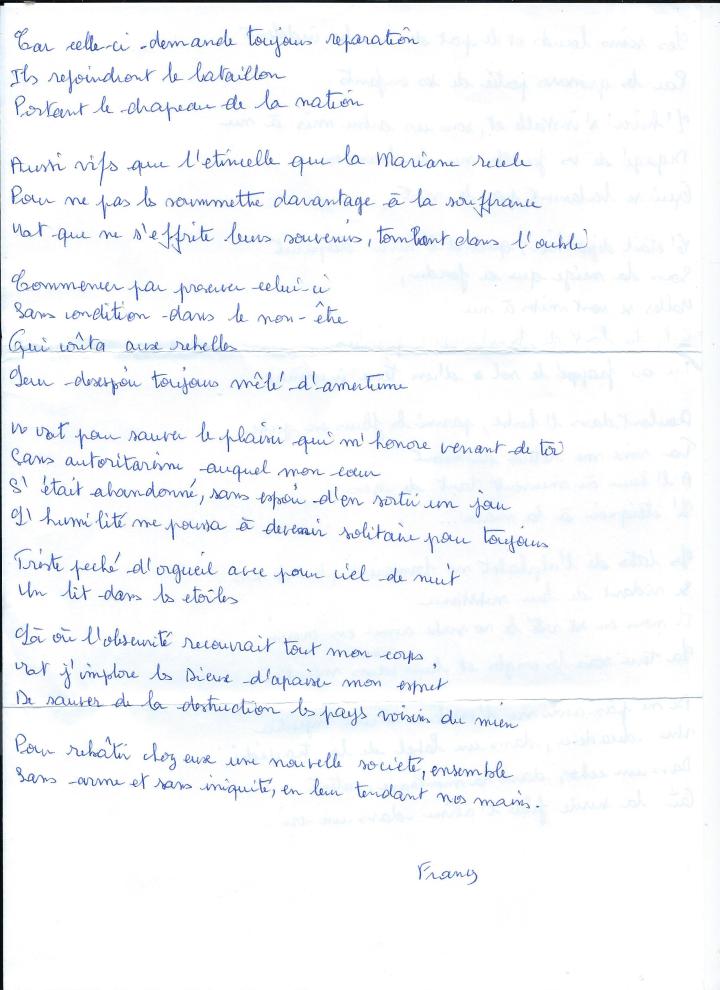 Car celle-ci demande toujours reparation
Ils rejoindront le bataillon
Portant le drapeau de la nation
Aussi vifs que l'etincelle que la Mariane recele
Pour ne pas les soummettre davantage à la souffrance
que ne s'effrite leurs souvenirs, tombant dans l'oublie
Commencer par preserver celui-ci
Sans condition dans le non-être
Qui coûta aux rebelles
Leur desespoir toujours mêlé d'amertume
pour sauver le plaisir qui m'honore venant de toi
Sans autoritarisme auquel mon cœur
S'était abandonné, sans espoir d'en sortir un jour
L'humilité me poussa à devenir solitaire pour toujours
Triste peché d'orgueil avec pour ciel de nuit
Un lit dans les etoiles
Là où l'obscurité recouvrait tout mon corps,
j'implore les Dieux d'apaiser mon esprit
De sauver de la destruction les pays voisins du mien
Pour rebâtir chez eux une nouvelle societé, ensemble
Sans arme et sans iniquité, en leur tendant nos mains.
Francy